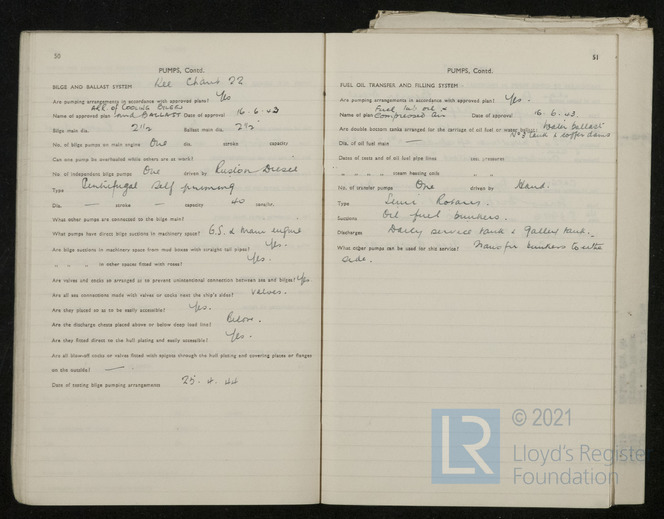 50
PUMPS, Contd.
BILGE AND BALLAST SYSTEM Kee Chant 22
Are pumping arrangements in accordance with approved plans? Yes
Arr. of Cooling Bilge
Name of approved plan and BALLAST Date of approval 16.6.43
Bilge main dia. 2½ Ballast main dia. 2½"
No. of bilge pumps on main engine One dia. stroke capacity
Can one pump be overhauled while others are at work?
No. of independent bilge pumps One driven by Ruston Diesel
Type Centrifugal Self priming
Dia. — stroke — capacity 40 tons/hr.
What other pumps are connected to the bilge main?
What pumps have direct bilge suctions in machinery space? G.S. & Main engine
Are bilge suctions in machinery space from mud boxes with straight tail pipes? Yes.
" " " in other spaces fitted with roses? Yes.
Are valves and cocks so arranged as to prevent unintentional connection between sea and bilges? Yes
Are all sea connections made with valves or cocks next the ship's sides? Valves.
Are they placed so as to be easily accessible? Yes.
Are the discharge chests placed above or below deep load line? Below.
Are they fitted direct to the hull plating and easily accessible? Yes.
Are all blow-off cocks or valves fitted with spigots through the hull plating and covering plates or flanges
on the outside? —
Date of testing bilge pumping arrangements 25.4.44
51
PUMPS, Contd.
FUEL OIL TRANSFER AND FILLING SYSTEM
Are pumping arrangements in accordance with approved plan? Yes.
Fuel
Name of plan Compressed Air Date of approval 16.6.43.
Are double bottom tanks arranged for the carriage of oil fuel or water ballast? Water Ballast
No 3 tank & cofferdams
Dia. of oil fuel main —
Dates of tests and of oil fuel pipe lines test pressures
" " " " steam heating coils " "
No. of transfer pumps One driven by Hand.
Type Semi Rotary.
Suctions Oil fuel bunkers.
Discharges Daily service tank & galley tank.
What other pumps can be used for this service? Transfer bunkers to
side.
© 2021
LR
Lloyd's Register
Foundation